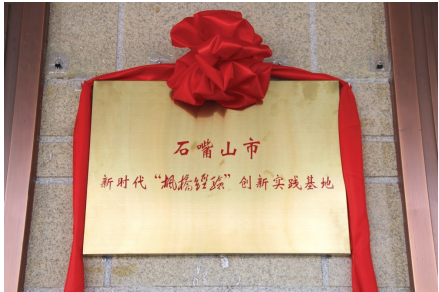 石嘴山市
新时代“枫桥经验”创新实践基地